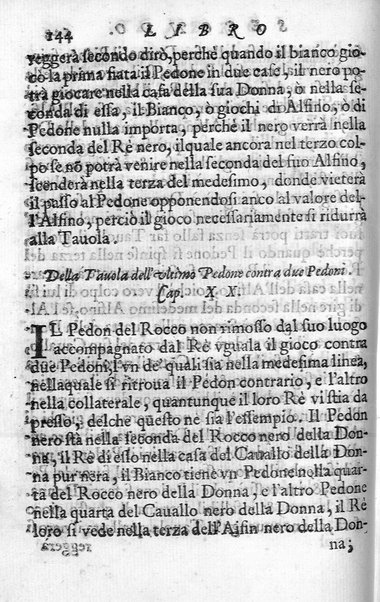 244 LIBRO
reggerà secondo dirò, perche quando il bianco gio-
co la prima fiata il Pedone in due case, il nero po-
trà giocare nella casa della sua Donna, ò nella se-
conda di essa, il Bianco, ò giochi di Alfino, ò di
Pedone nulla importa, perche il nero verrà nella
seconda del Rè nero, ilquale ancora nel terzo col-
po se nō potrà venire nella seconda del suo Alfino,
scenderà nella terza del medesimo, donde vieterà
il passo al Pedone opponendosi anco al valore del-
l'Alfino, perciò il gioco necessariamente si ridurrà
alla Tauola.
Della Tauola dell'vltimo Pedone contra due Pedoni.
Cap. X X.
IL Pedon del Rocco non rimosso dal suo luogo
accompagnato dal Rè vguala il gioco contra
due Pedoni, l'vn de' quali sia nella medesima linea,
nellaquale si ritroua il Pedon contrario, e l'altro
nella collaterale, quantunque il loro Rè vi stia da
presso, delche questo ne sia l'essempio. Il Pedon
nero stà nella seconda del Rocco nero della Don-
na, il Rè di esso nella casa del Cauallo della Don-
na pur nera, il Bianco tiene vn Pedone nella quar-
ta del Rocco nero della Donna, e l'altro Pedone
nella quarta del Cauallo nero della Donna, e il Rè
loro si vede nella terza dell'Alfin nero della Don-
na;